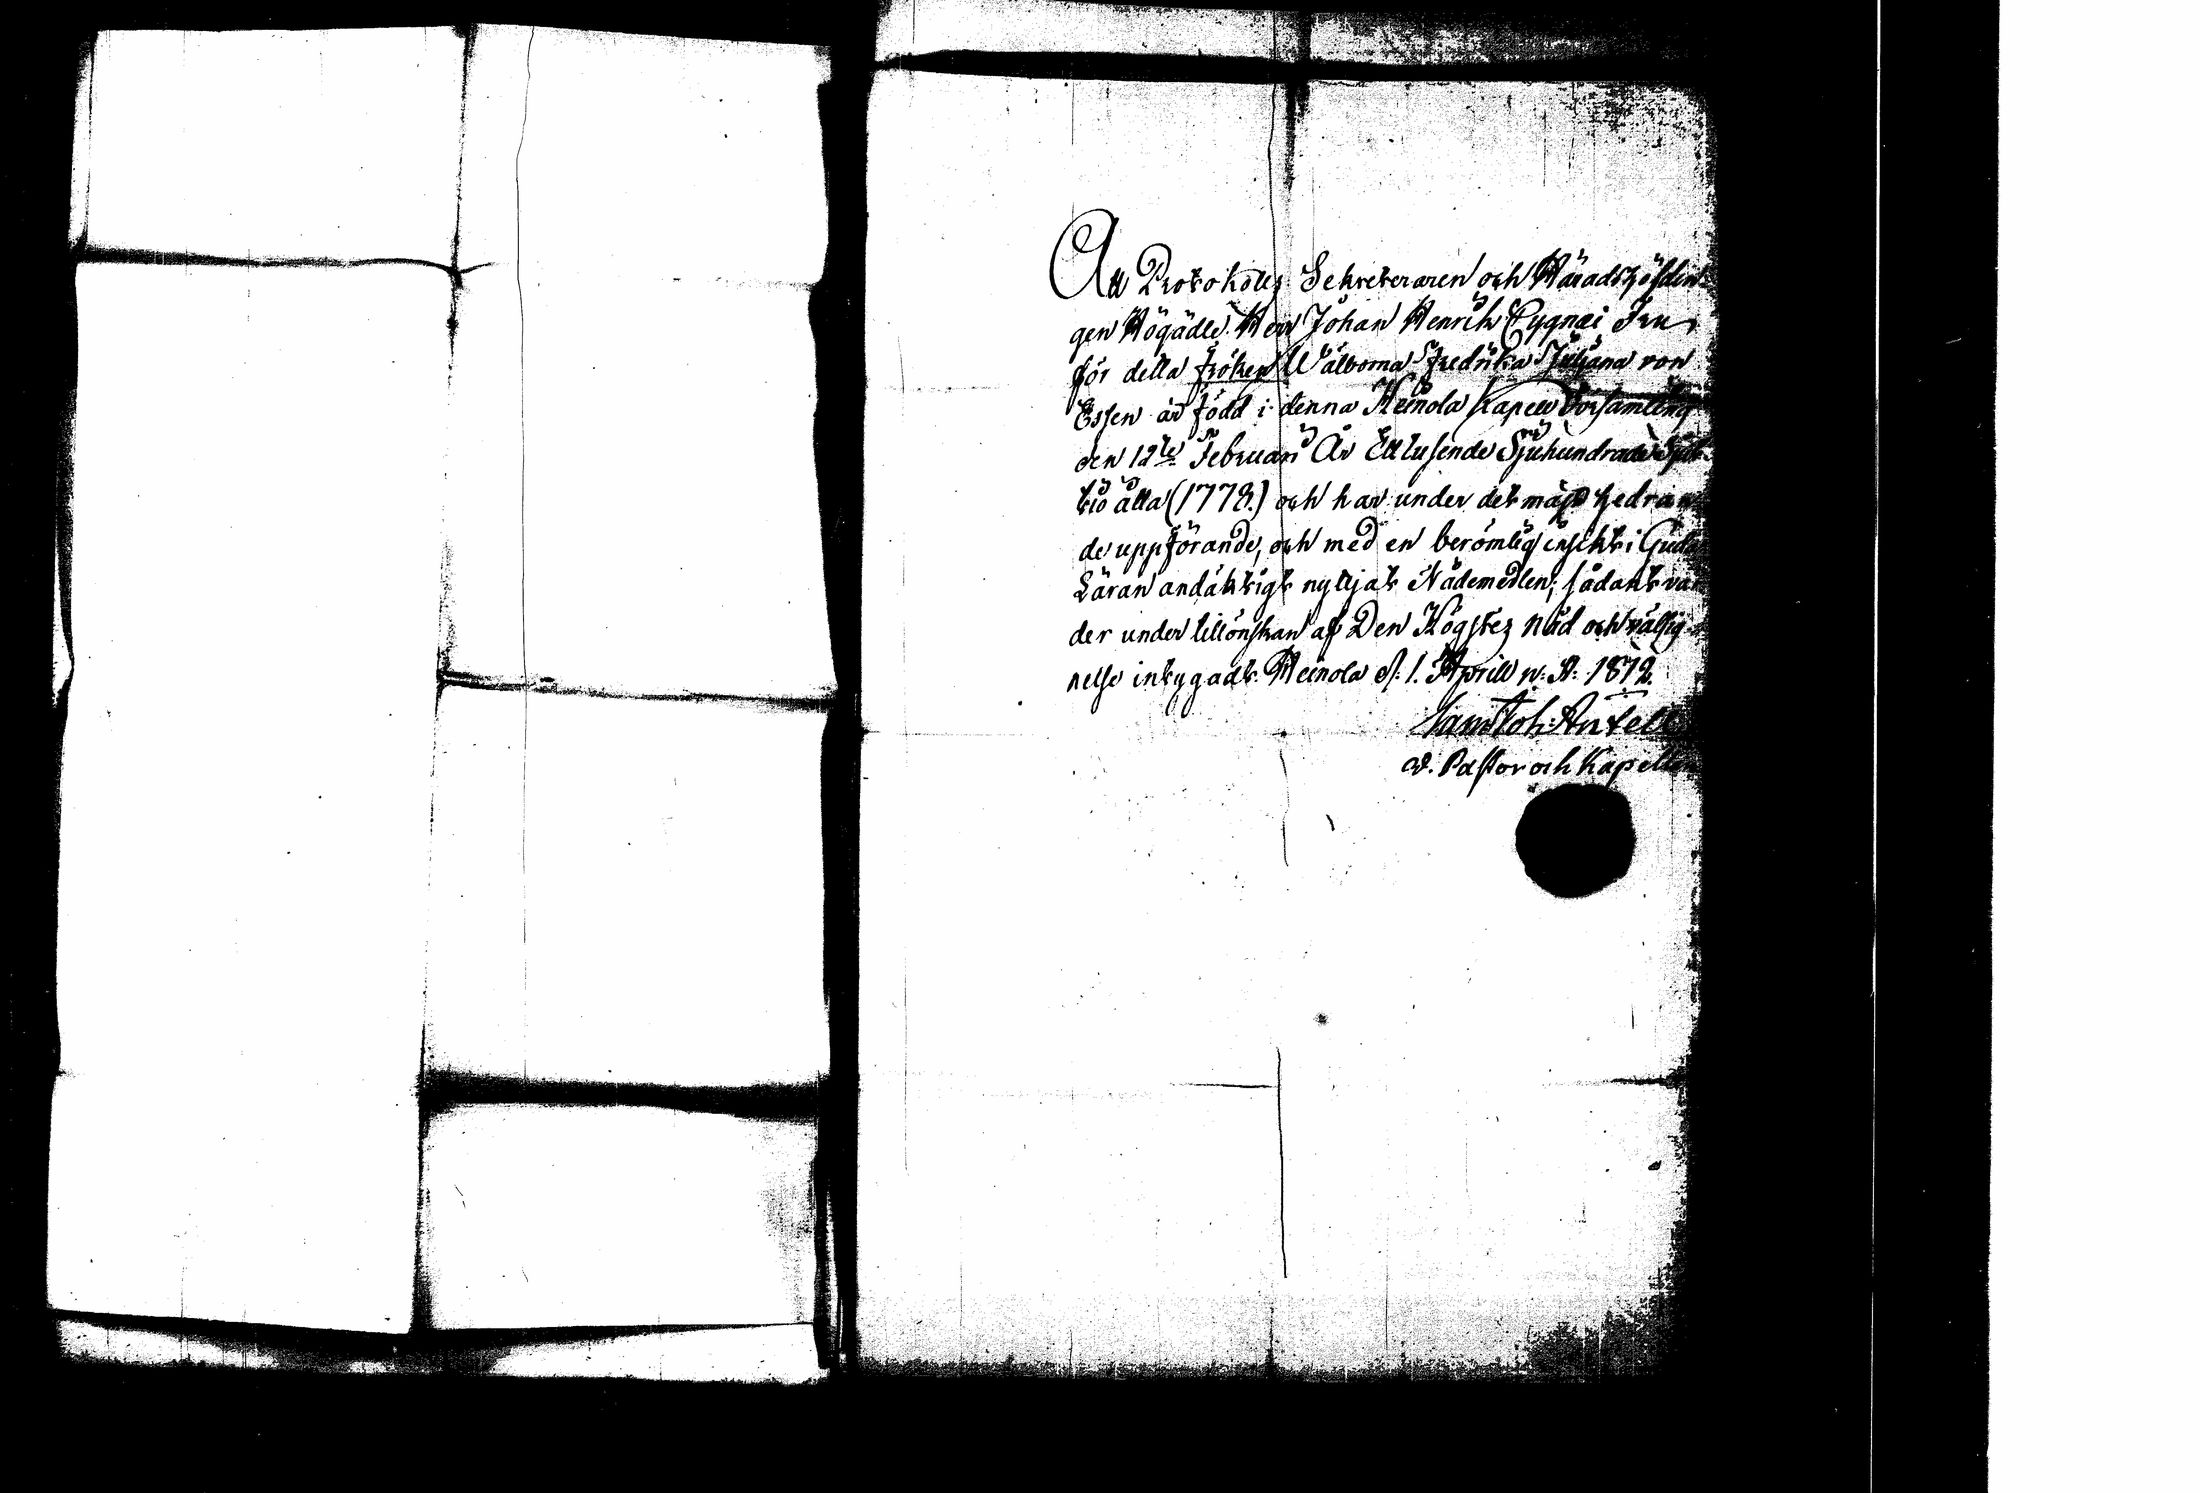 Att Protokolls Sekreteraren och Häradshöfdin-
gen Högädle Herr Johan Henrik Cygnæi Fru,
för detta Fröken Wälborna Fredrika Juliana von
Essen är född i denna Heinola Kapell Församling
den 12te Februari År Ettusende Sjuhundrade Sjut-
tio åtta (1778.) och har under det mäst hedran-
de uppförande, och med en berömlig insickt i Guda
Läran andäktigt nyttjat Nådemedlen; sådant var
der under tillönskan af Den Högstes nåd och välsig-
nelse intygadt. Heinola d. 1. Aprill n. St. 1812.
Sam Joh: Antell
v. Pastor och Kapellan